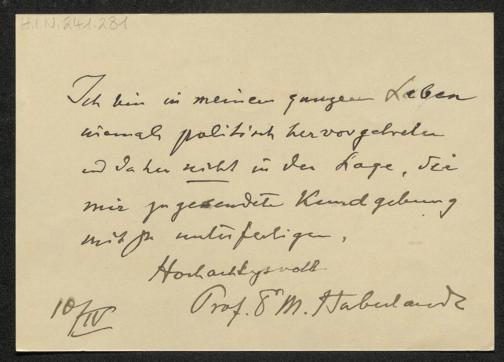 H.I.N. 241.281
Ich bin in meinem ganzen Leben
niemals politisch hervorgetreten
und daher nicht in der Lage, die
mir zugesendete Kundgebung
mit zu unterfertigen.
Hochachtungsvoll
Prof. Dr M. Haberlandt
10/IV